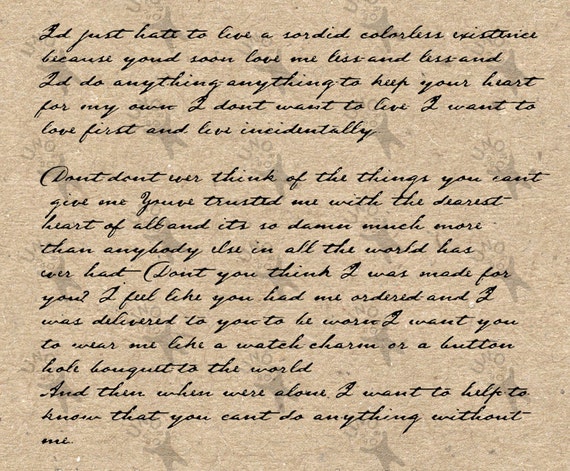 Id just hate to live a sordid colorless existence
because youd soon love me less and less and
Id do anything anything to keep your heart
for my own I dont want to live I want to
love first and live incidentally
Dont dont ever think of the things you cant
give me Youve trusted me with the dearest
heart of all and its so damn much more
than anybody else in all the world has
ever had Dont you think I was made for
you? I feel like you had me ordered and I
was delivered to you to be worn I want you
to wear me like a watch charm or a button
hole bouquet to the world
And then when were alone I want to help to
know that you cant do anything without
me.